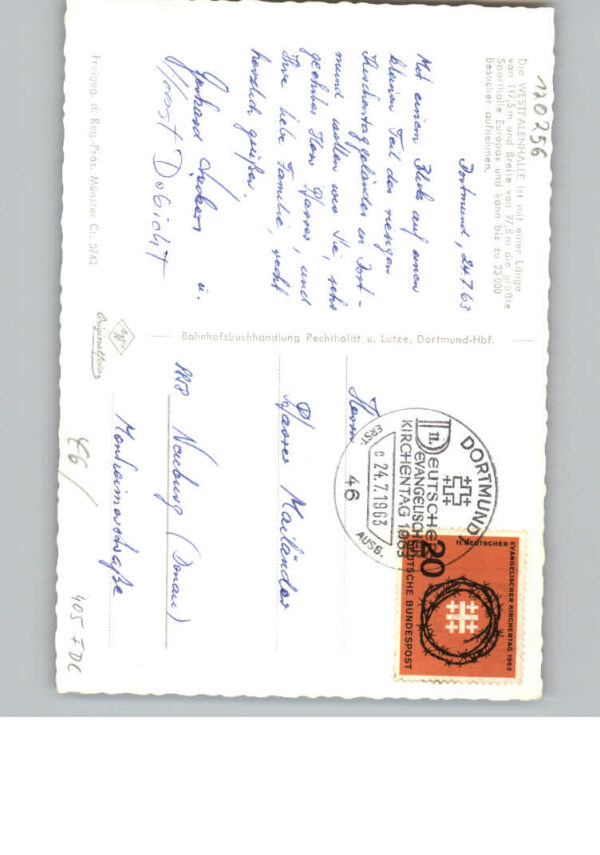 120256
Die WESTFALENHALLE ist mit einer Länge
von 117,5 m und Breite von 97,8 m die größte
Sporthalle Europas und kann bis zu 23 000
Besucher aufnehmen.
Dortmund, 24.7.63
Mit einem Blick auf einen
kleinen Teil des riesigen
Kirchentaggeländes in Dort-
mund wollen wir Sie, sehr
geehrter Herr Pfarrer, und
Ihre liebe Familie, recht
herzlich grüßen.
Gerhard u.
Horst Dobicht
Freigeg. d. Reg.-Präs. Münster Cr. 5743
Bahnhofsbuchhandlung Pechtholdt u. Lutze, Dortmund-Hbf.
Originalfoto
Herrn
Pfarrer Mailänder
8858 Neuburg (Donau)
Monheimerstraße
DORTMUND
11. DEUTSCHER
EVANGELISCHER
KIRCHENTAG 1963
ERST-
c 24.7.1963
AUSG.
46
20
11. DEUTSCHER EVANGELISCHER KIRCHENTAG 1963
DEUTSCHE BUNDESPOST
€6/
405 FDC